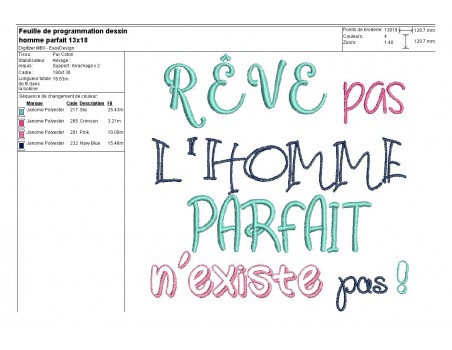 Feuille de programmation dessin
homme parfait 13x18
Digitizer MBII - ExanDesign
Points de broderie: 13018
Couleurs: 4
Zoom: 1:48
129.7 mm
129.7 mm
Tissu: Pur Coton
Stabilisateur
Support: Arrachage x 2
Cadre: 180x130
Longueur totale de fil dans la bobine:
Séquence de changement de couleur:
Marque Code Description Fil
Janome Polyester 217 Sky 25.43m
Janome Polyester 205 Crimson 3.21m
Janome Polyester 201 Pink
Janome Polyester 232 Navy Blue 15.46m
RÊVE pas
L'HOMME
PARFAIT
n'existe pas !